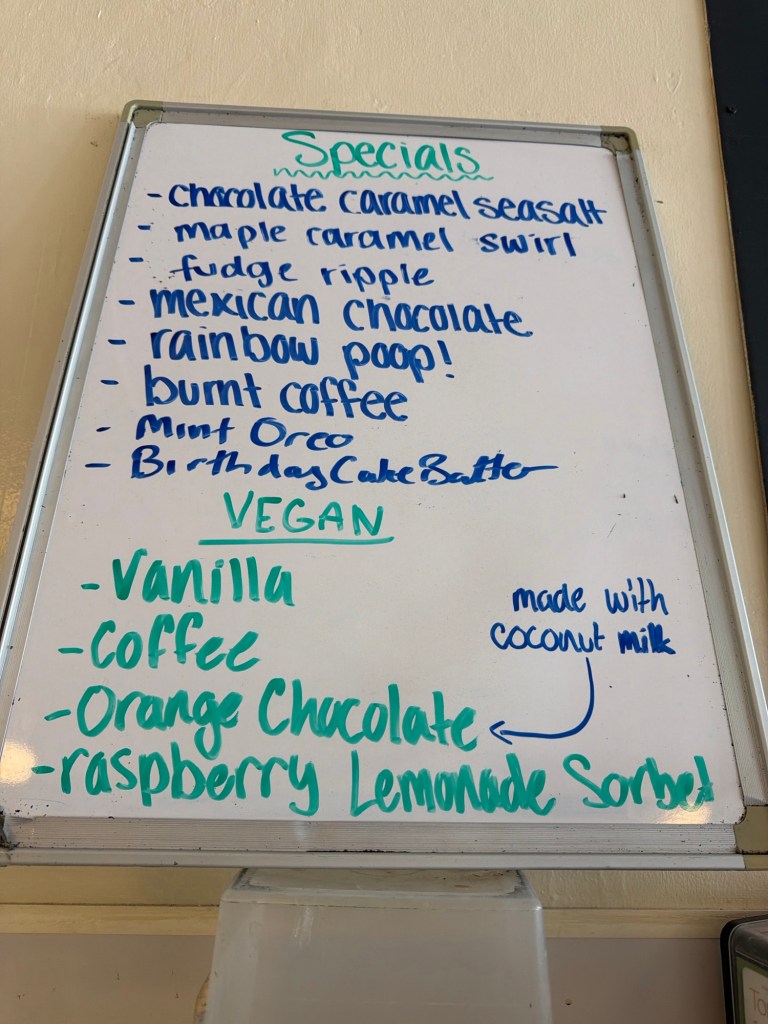 Specials
- chocolate caramel seasalt
- maple caramel swirl
- fudge ripple
- mexican chocolate
- rainbow poop!
- burnt coffee
- Mint Oreo
- Birthday Cake Batter
VEGAN
- Vanilla
- Coffee
made with
coconut milk
- Orange Chocolate
- raspberry Lemonade Sorbet